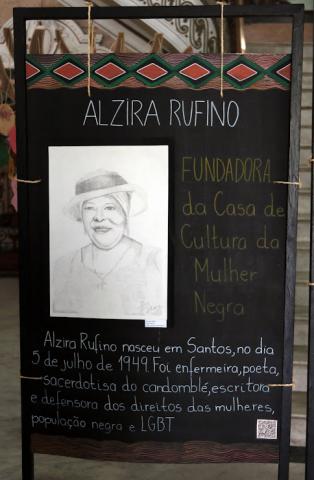 ALZIRA RUFINO
FUNDADORA
da Casa de
Cultura da
Mulher
Negra
Alzira Rufino nasceu em Santos, no dia
5 de julho de 1949. Foi enfermeira, poeta,
sacerdotisa do candomblé, escritora
e defensora dos direitos das mulheres,
população negra e LGBT